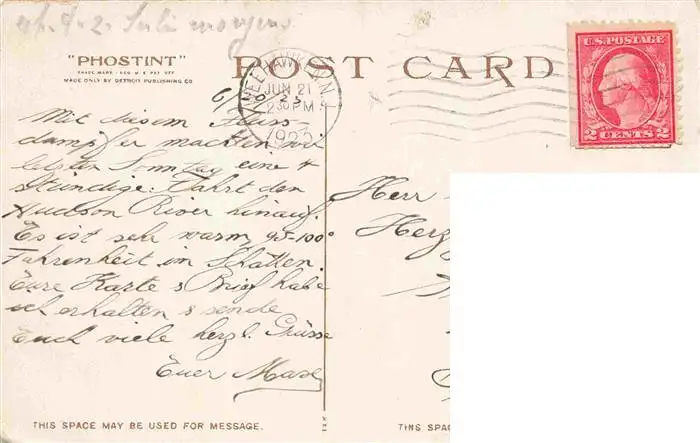 2. Juli morgens
"PHOSTINT"
TRADE MARK - REG. U.S. PAT. OFF.
MADE ONLY BY DETROIT PUBLISHING CO.
POST CARD
U.S. POSTAGE
2 CENTS 2
JUN 21
230 PM
6/20 23
Mit diesem Fluss-
dampfer machten wir
letzten Sonntag eine 4
stündige Fahrt den
Hudson River hinauf.
Es ist sehr warm, 95-100°
Fahrenheit im Schatten.
Eure Karte & Brief habe
ich erhalten & sende
Euch viele herzl. Grüsse
Euer Max
Herr
Herz
THIS SPACE MAY BE USED FOR MESSAGE.
THIS SPAC